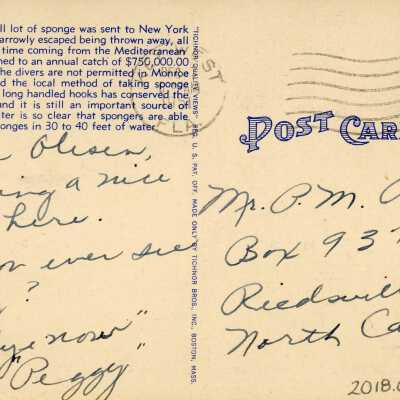 ll lot of sponge was sent to New York
arrowly escaped being thrown away, all
time coming from the Mediterranean
ned to an annual catch of $750,000.00
he divers are not permitted in Monroe
d the local method of taking sponge
long handled hooks has conserved the
nd it is still an important source of
ter is so clear that spongers are able
onges in 30 to 40 feet of water.
Olesen,
ing a nice
here.
ever see
?
ye now"
"Peggy"
"TICHNOR QUALITY VIEWS" REG. U. S. PAT. OFF. MADE ONLY BY TICHNOR BROS., INC., BOSTON, MASS.
EST
FLA
POST CAR
Mr. P. M.
Box 937
Reidsvill
North Ca
2018.